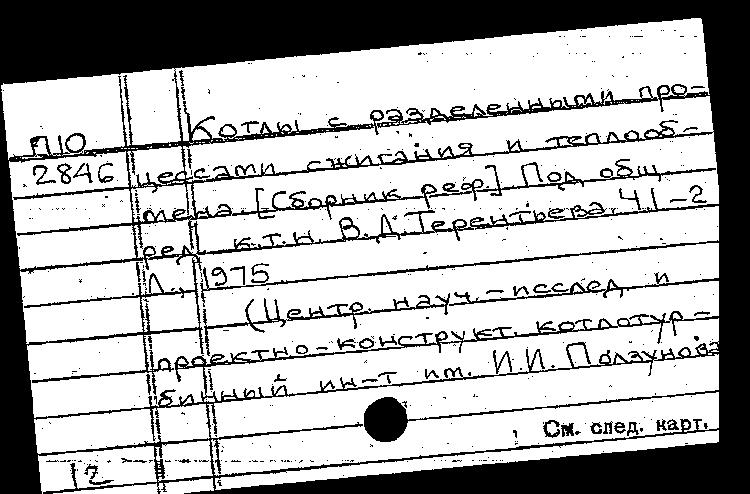 П10
2846
Котлы с разделенными про-
цессами сжигания и теплооб-
мена. [Сборник реф.] Под общ.
ред. к.т.н. В.Д. Терентьева. Ч.1-2
Л., 1975
(Центр. науч.-исслед. и
проектно-конструкт. котлотур-
бинный ин-т им. И.И. Ползунова
См. след. карт.
12